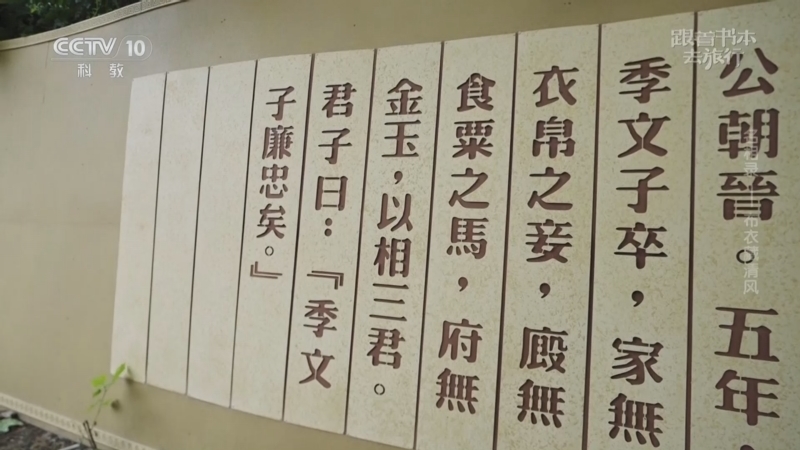 CCTV 10
科教
跟着书本
去旅行
公朝晉。五年，
季文子卒，家無
衣帛之妾，廄無
食粟之馬，府無
金玉，以相三君。
君子曰：『季文
子廉忠矣。』